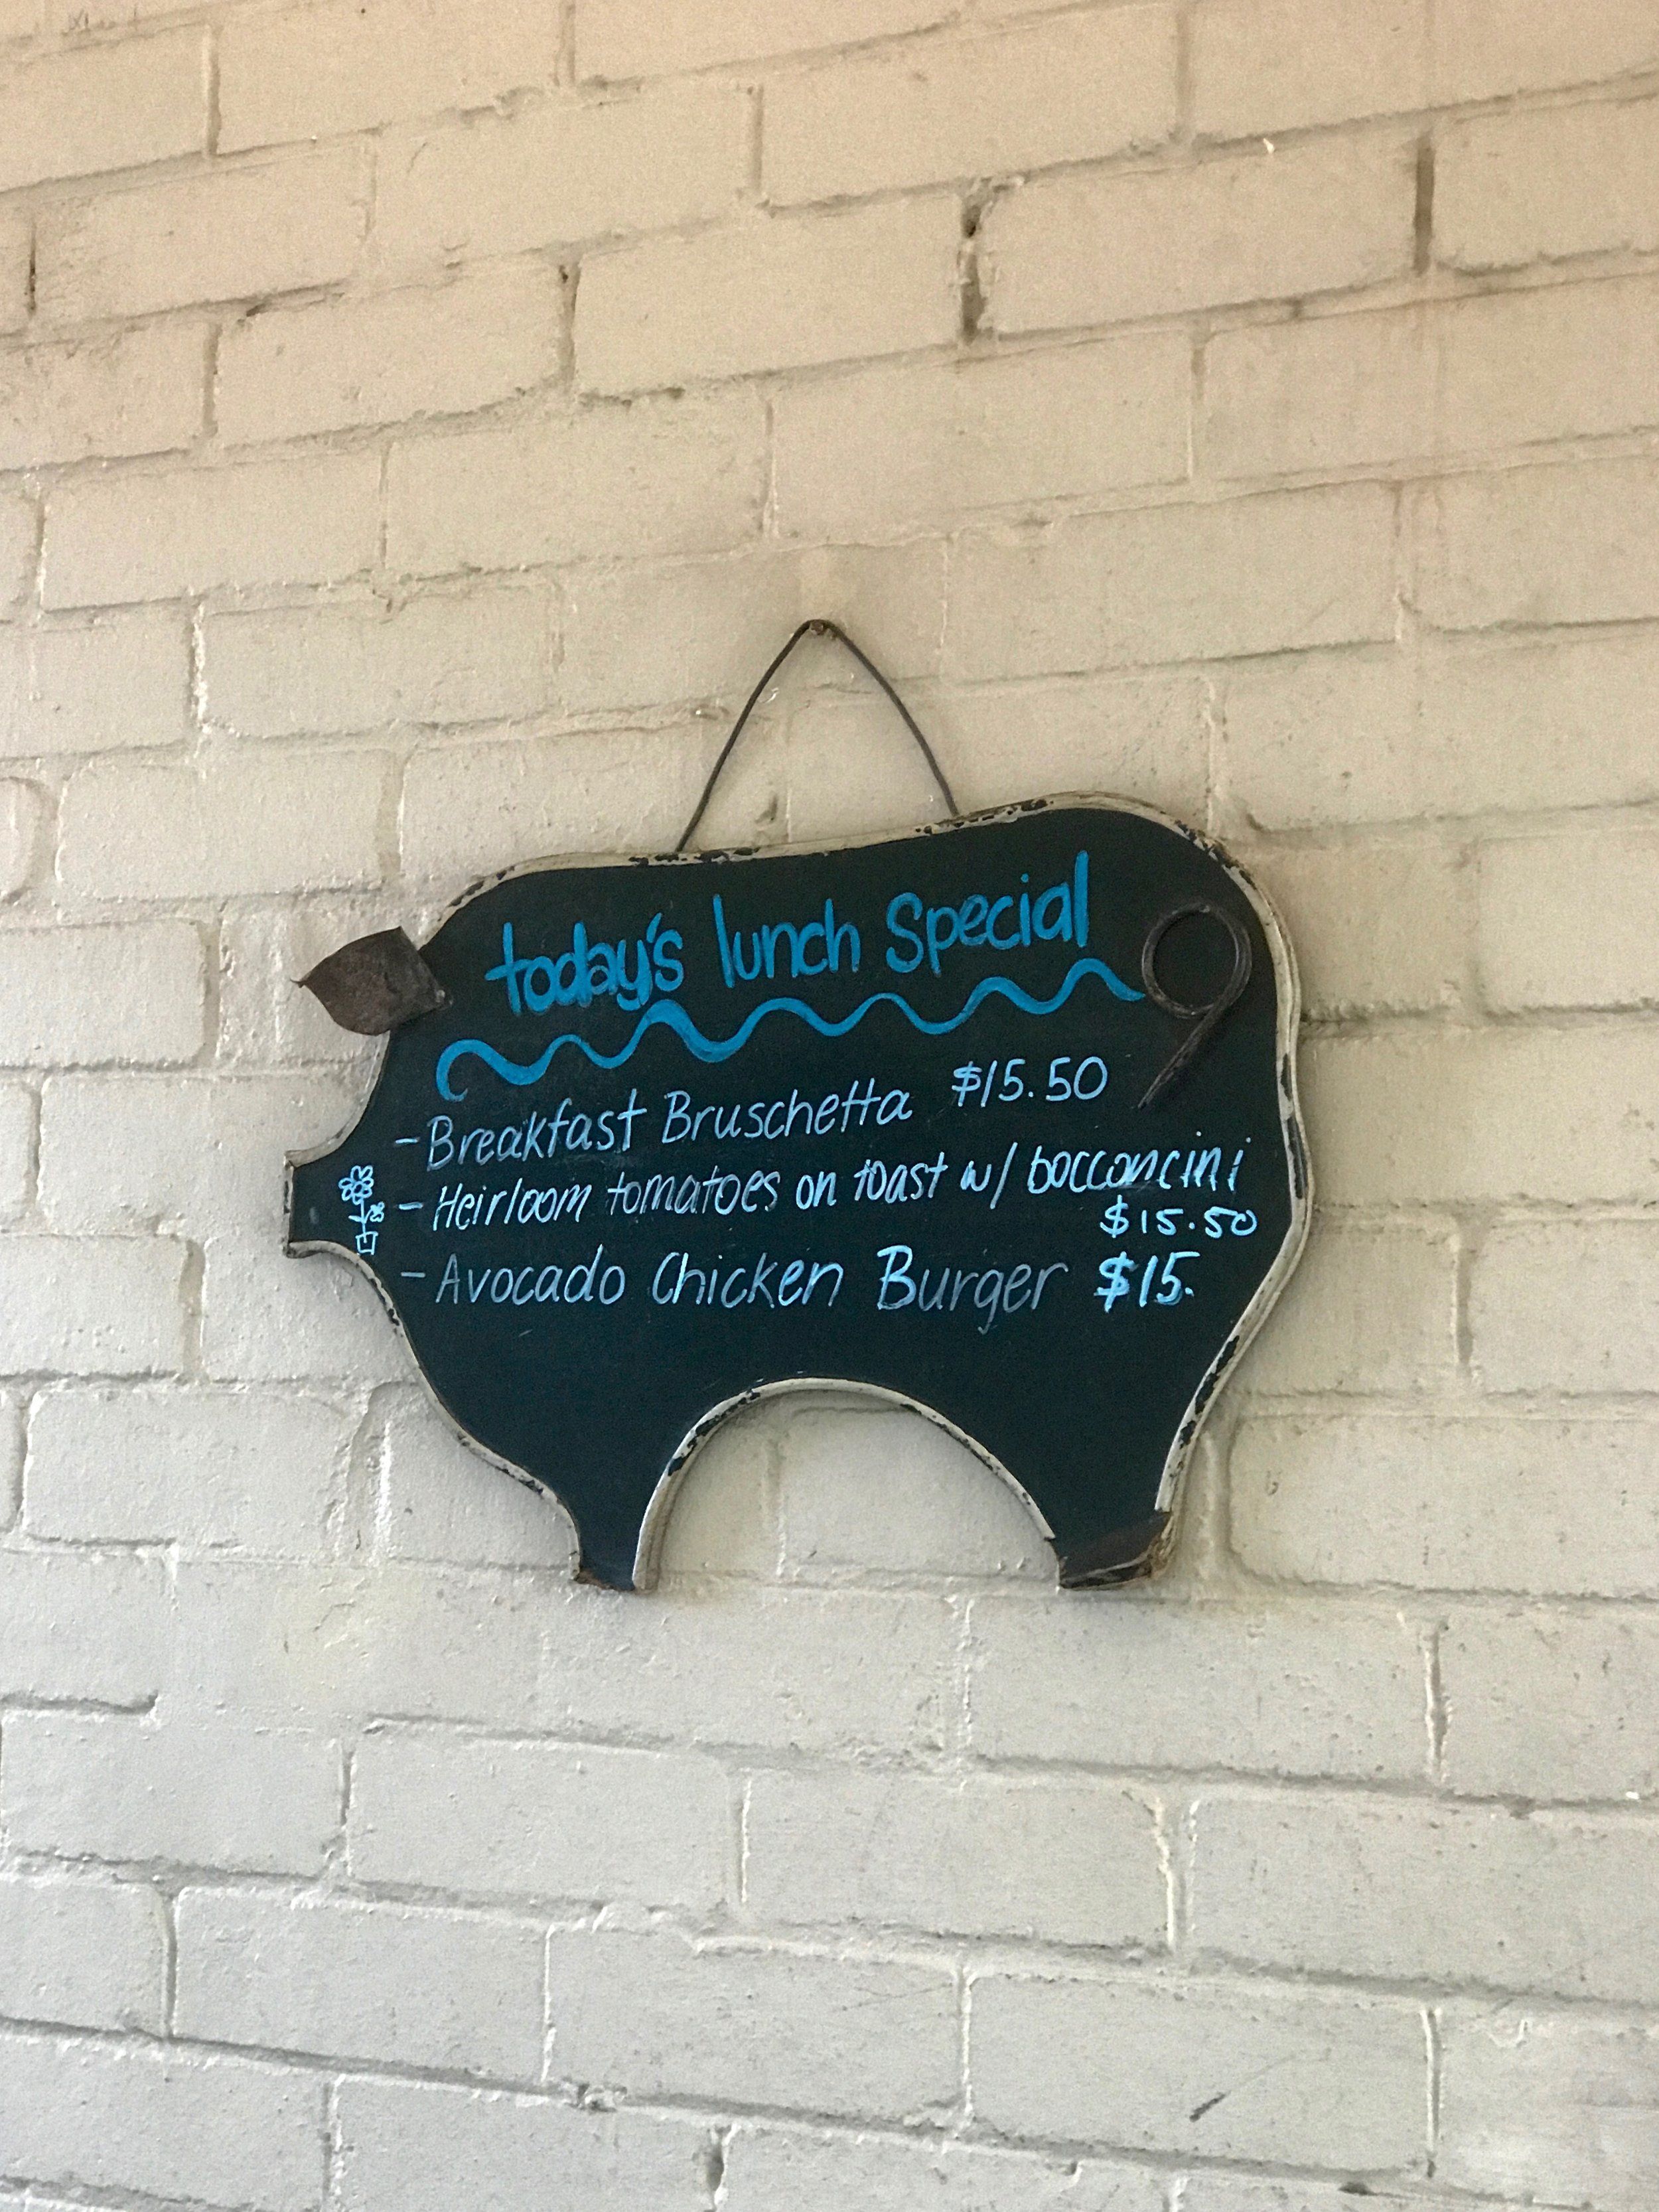 today's lunch special
- Breakfast Bruschetta $15.50
- Heirloom tomatoes on toast w/ bocconcini
$15.50
- Avocado Chicken Burger $15.